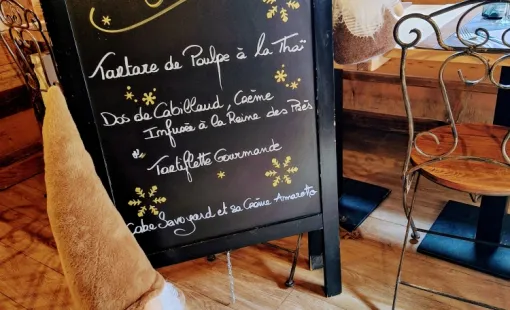 Tartare de Poulpe à la Thaï
Dos de Cabillaud, Crème
Infusée à la Reine des Prés
Tartiflette Gourmande
Savoyard et sa Crème Amaretto